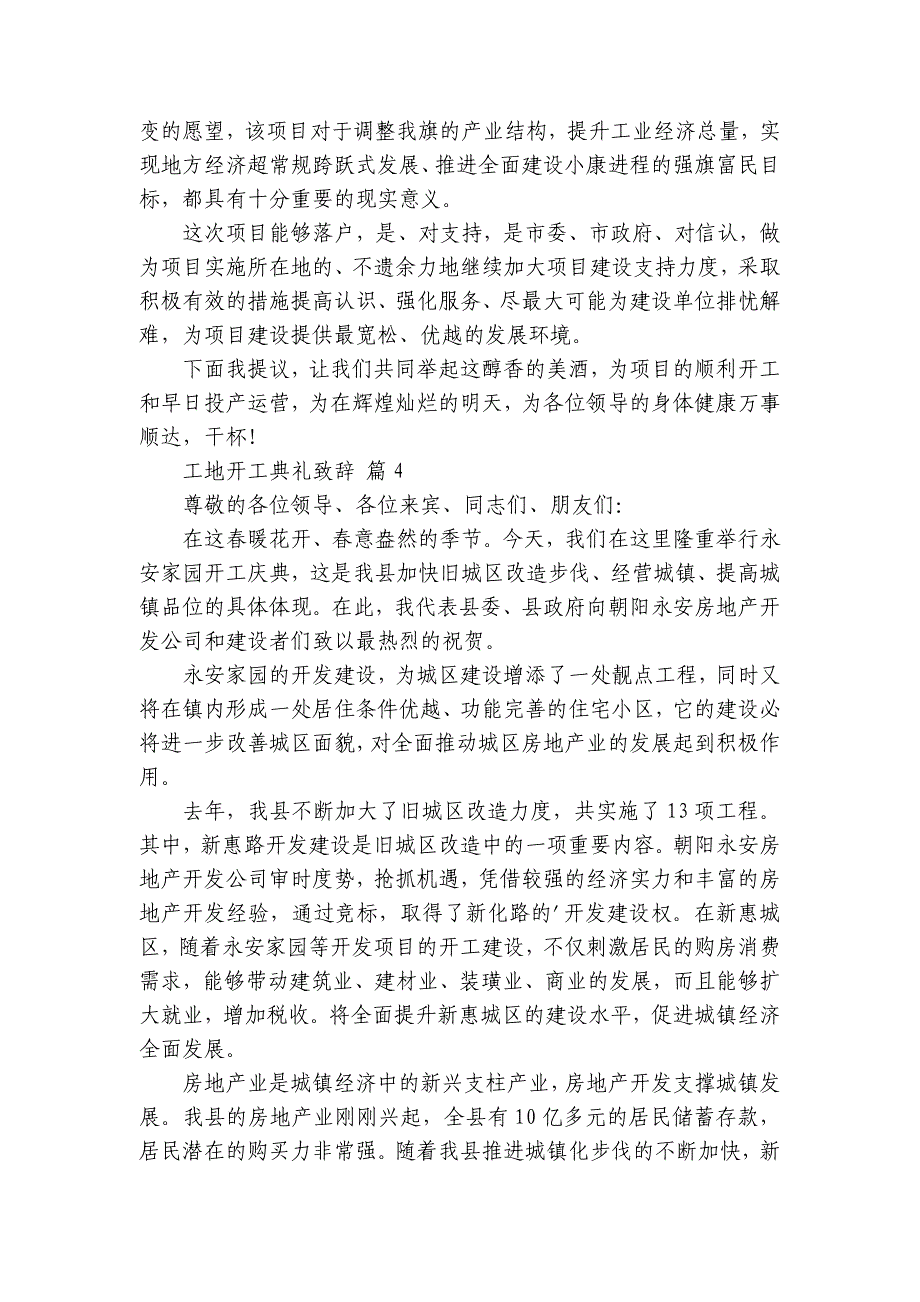 变的愿望，该项目对于调整我旗的产业结构，提升工业经济总量，实
现地方经济超常规跨跃式发展、推进全面建设小康进程的强旗富民目
标，都具有十分重要的现实意义。
这次项目能够落户，是、对支持，是市委、市政府、对信认，做
为项目实施所在地的、不遗余力地继续加大项目建设支持力度，采取
积极有效的措施提高认识、强化服务、尽最大可能为建设单位排忧解
难，为项目建设提供最宽松、优越的发展环境。
下面我提议，让我们共同举起这醇香的美酒，为项目的顺利开工
和早日投产运营，为在辉煌灿烂的明天，为各位领导的身体健康万事
顺达，干杯！
工地开工典礼致辞 篇4
尊敬的各位领导、各位来宾、同志们、朋友们：
在这春暖花开、春意盎然的季节。今天，我们在这里隆重举行永
安家园开工庆典，这是我县加快旧城区改造步伐、经营城镇、提高城
镇品位的具体体现。在此，我代表县委、县政府向朝阳永安房地产开
发公司和建设者们致以最热烈的祝贺。
永安家园的开发建设，为城区建设增添了一处靓点工程，同时又
将在镇内形成一处居住条件优越、功能完善的住宅小区，它的建设必
将进一步改善城区面貌，对全面推动城区房地产业的发展起到积极作
用。
去年，我县不断加大了旧城区改造力度，共实施了13项工程。
其中，新惠路开发建设是旧城区改造中的一项重要内容。朝阳永安房
地产开发公司审时度势，抢抓机遇，凭借较强的经济实力和丰富的房
地产开发经验，通过竞标，取得了新化路的′开发建设权。在新惠城
区，随着永安家园等开发项目的开工建设，不仅刺激居民的购房消费
需求，能够带动建筑业、建材业、装璜业、商业的发展，而且能够扩
大就业，增加税收。将全面提升新惠城区的建设水平，促进城镇经济
全面发展。
房地产业是城镇经济中的新兴支柱产业，房地产开发支撑城镇发
展。我县的房地产业刚刚兴起，全县有10亿多元的居民储蓄存款，
居民潜在的购买力非常强。随着我县推进城镇化步伐的不断加快，新